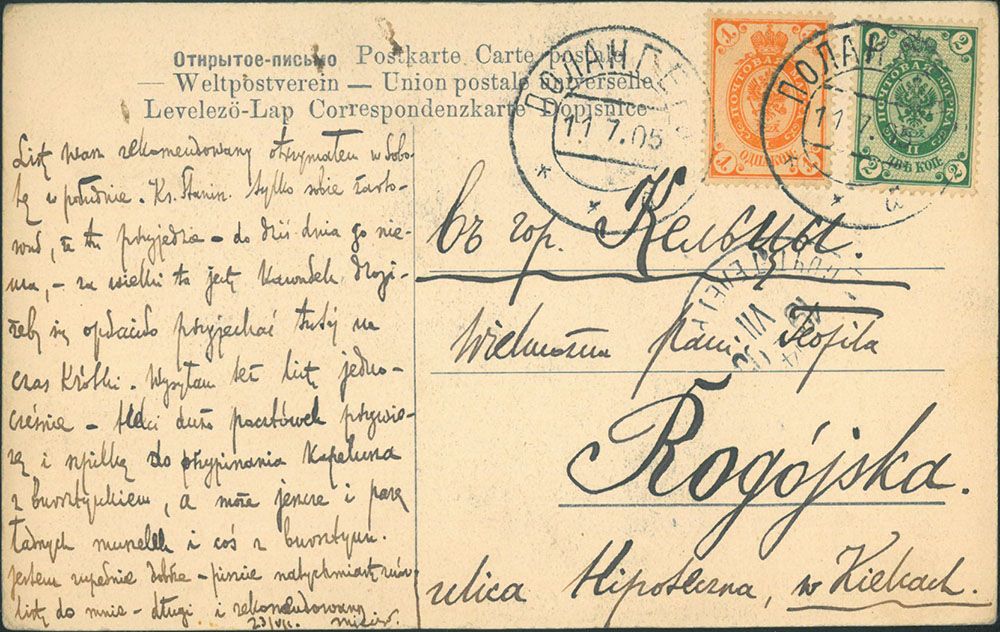 Открытое-письмо Postkarte Carte postale
— Weltpostverein — Union postale universelle
Levelező-Lap Correspondenzkarte Dopisnice
ПОЛАНГЕНЪ
11 7.05
1
ПОЧТОВАЯ МАРКА
1 ОДНА КОП. 1
ПОЛАН
11 7.
2 2
ПОЧТОВАЯ МАРКА
2 ДВѢ КОП. 2
List wasz rekomendowany otrzymałem w sobo-
tę w południe. Ks. Stanis. tylko sobie żarto-
wał, że tu przyjedzie – do dziś dnia go nie-
ma, – za wielki to jest kawałek drogi
żeby się opłaciło przyjechać tutaj na
czas krótki. Wysyłam też listy jedno-
cześnie – dużo pocztówek przywio-
zę i szpilkę do przypinania kapelusza
z bursztynkiem, a może jeszcze i parę
ładnych muszelek i coś z bursztynu.
Jestem zupełnie dobrze – piszcie natychmiast
listy do mnie – długi i rekomendowany
23/VII.
въ гор. Кельцы.
VII
Wielmożna Pani Teofila
Rogójska.
ulica Hipoteczna, w Kielcach.